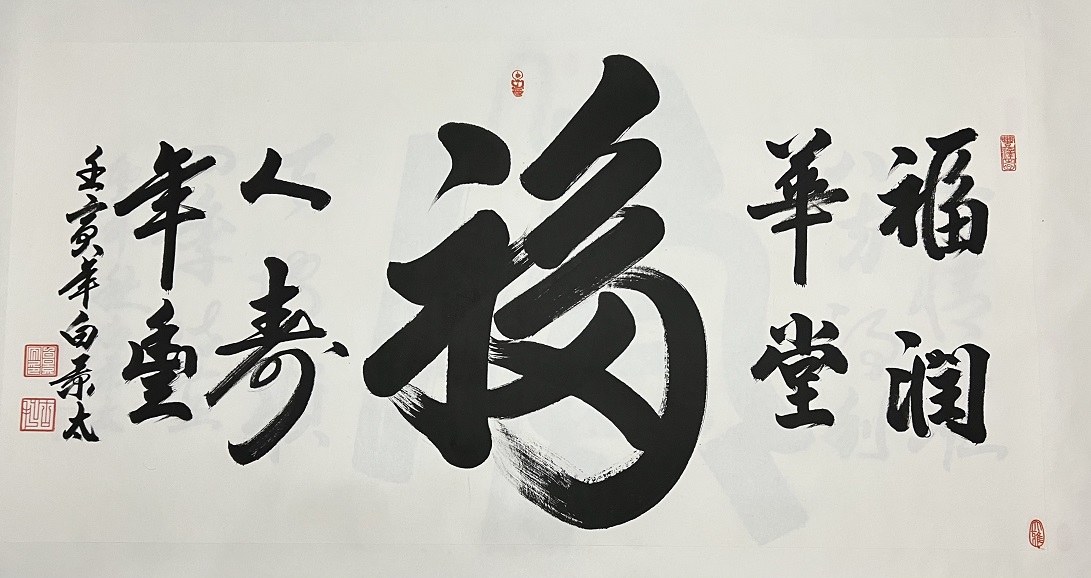 福潤
華堂
福
人壽
年豐
壬寅年白景太